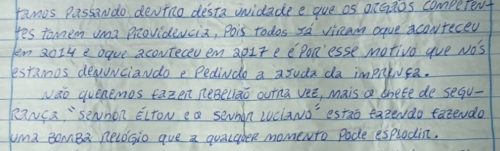 tamos passando, dentro desta unidade e que os orgãos competen-
tes tomem uma providencia, pois todos já viram oque aconteceu
em 2014 e oque aconteceu em 2017 e é por esse motivo que nós
estamos denunciando e pedindo a ajuda da imprença.
Não queremos fazer rebelião outra vez, mais o chefe de segu-
rança, "senhor Élton e o senhor Luciano" estão fazendo fazendo
uma bomba relógio que a qualquer momento pode esplodir.